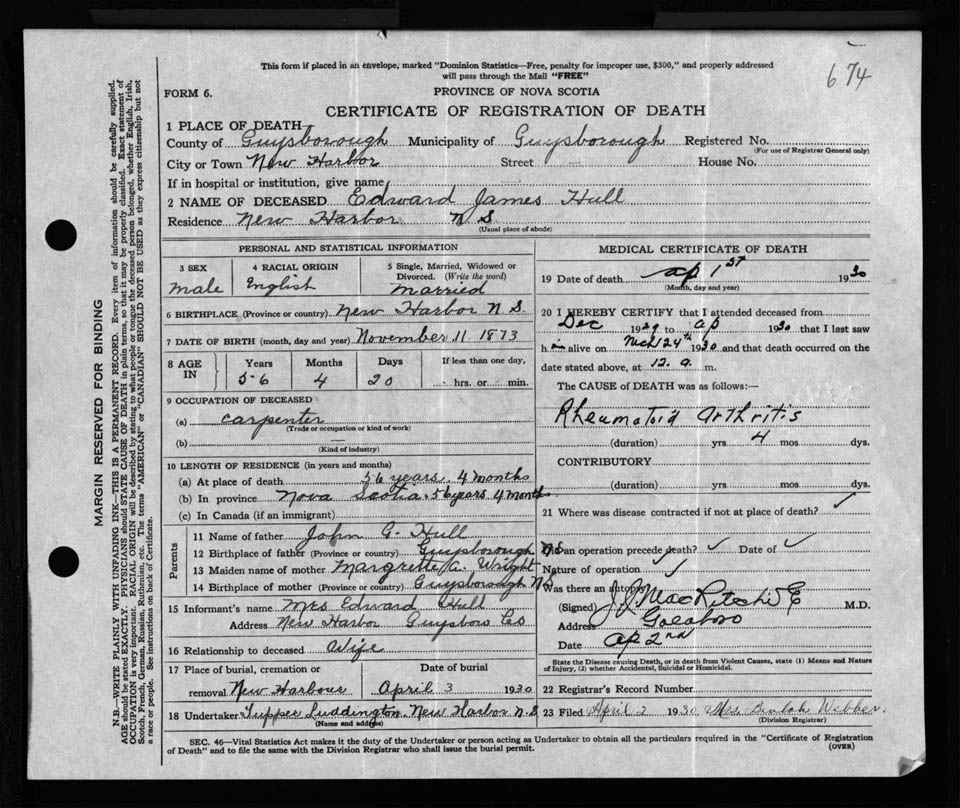 This form if placed in an envelope, marked "Dominion Statistics—Free, penalty for improper use, $300," and properly addressed
will pass through the Mail "FREE"
674
FORM 6.
PROVINCE OF NOVA SCOTIA
CERTIFICATE OF REGISTRATION OF DEATH
1 PLACE OF DEATH
County of Guysborough Municipality of Guysborough Registered No.
(For use of Registrar General only)
City or Town New Harbor Street House No.
If in hospital or institution, give name
2 NAME OF DECEASED Edward James Hull
Residence New Harbor N S
(Usual place of abode)
PERSONAL AND STATISTICAL INFORMATION
3 SEX 4 RACIAL ORIGIN 5 Single, Married, Widowed or
Divorced. (Write the word)
male English married
6 BIRTHPLACE (Province or country) New Harbor N S.
7 DATE OF BIRTH (month, day and year) November 11 1873
8 AGE IN Years Months Days If less than one day,
56 4 20 hrs. or min.
9 OCCUPATION OF DECEASED
(a) carpenter
(Trade or occupation or kind of work)
(b) —
(Kind of industry)
10 LENGTH OF RESIDENCE (in years and months)
(a) At place of death 56 years 4 months
(b) In province Nova Scotia. 56 years 4 months
(c) In Canada (if an immigrant)
Parents
11 Name of father John G. Hull
12 Birthplace of father (Province or country) Guysborough N S
13 Maiden name of mother Margrette A. Wright
14 Birthplace of mother (Province or country) Guysborough N S
15 Informant's name Mrs Edward Hull
Address New Harbor Guysboro Co
16 Relationship to deceased Wife
17 Place of burial, cremation or Date of burial
removal New Harbour April 3 1930
18 Undertaker Tupper Luddington New Harbor N.S
(Name and address)
MEDICAL CERTIFICATE OF DEATH
19 Date of death ap 1st 1930
(Month, day and year)
20 I HEREBY CERTIFY that I attended deceased from
Dec 1929 to ap 1930 that I last saw
h alive on Mch 24th 1930 and that death occurred on the
date stated above, at 12.a. m.
The CAUSE OF DEATH was as follows:—
Rheumatoid Arthritis
(duration) yrs 4 mos dys.
CONTRIBUTORY
(duration) yrs mos dys.
21 Where was disease contracted if not at place of death? ✓
Did an operation precede death? ✓ Date of ✓
Nature of operation ✓
Was there an autopsy
(Signed) J J MacRitchie M.D.
Address Goldboro
Date ap 2nd
State the Disease causing Death, or in death from Violent Causes, state (1) Means and Nature
of Injury, (2) whether Accidental, Suicidal or Homicidal.
22 Registrar's Record Number
23 Filed April 2 1930 Mrs. Beulah Webber.
(Division Registrar)
SEC. 46—Vital Statistics Act makes it the duty of the Undertaker or person acting as Undertaker to obtain all the particulars required in the "Certificate of Registration
of Death" and to file the same with the Division Registrar who shall issue the burial permit.
(OVER)
MARGIN RESERVED FOR BINDING
N.B.—WRITE PLAINLY WITH UNFADING INK—THIS IS A PERMANENT RECORD. Every item of information should be carefully supplied.
AGE should be stated EXACTLY. PHYSICIANS should STATE CAUSE OF DEATH in plain terms, so that it may be properly classified. Exact statement of
OCCUPATION is very important. RACIAL ORIGIN will be described by stating to what people or tongue the deceased person belonged, whether English, Irish,
Scotch, French, German, Russian, Ruthenian, etc. The terms "AMERICAN" or "CANADIAN" SHOULD NOT BE USED as they express citizenship but not
a race or people. See instructions on back of Certificate.